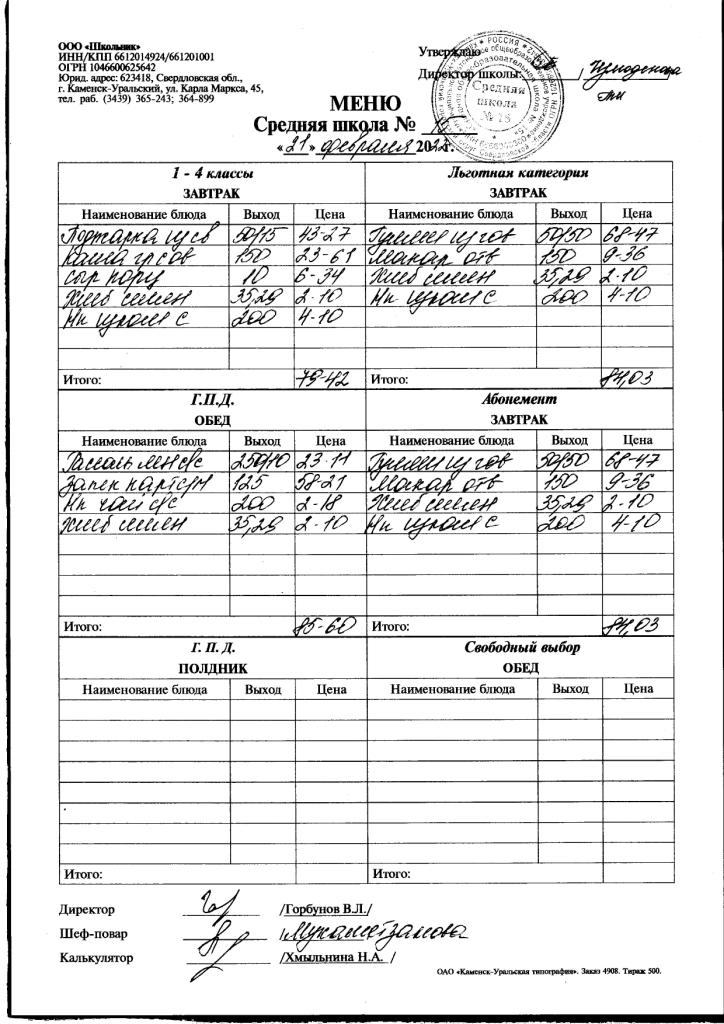 ООО «Школьник»
ИНН/КПП 6612014924/661201001
ОГРН 1046600625642
Юрид. адрес: 623418, Свердловская обл.,
г. Каменск-Уральский, ул. Карла Маркса, 45,
тел. раб. (3439) 365-243; 364-899
Утверждаю
Директор школы: /
Средняя
школа
МЕНЮ
Средняя школа №
«21» февраля 2022 г.
1 - 4 классы
ЗАВТРАК
Наименование блюда Выход Цена
Поджарка из св 50/15 43-27
Каша 150 23-61
сыр порц 10 6-34
Хлеб 35,29 2-10
Нп 200 4-10
Итого: 79-42
Льготная категория
ЗАВТРАК
Наименование блюда Выход Цена
Гуляш из гов 50/50 68-47
Макар отв 150 9-36
Хлеб 35,29 2-10
Нп 200 4-10
Итого: 84,03
Г.П.Д.
ОБЕД
Наименование блюда Выход Цена
250/10 23-11
Запек 125 58-21
Нп чай 200 2-18
Хлеб 35,29 2-10
Итого: 85-60
Абонемент
ЗАВТРАК
Наименование блюда Выход Цена
Гуляш из гов 50/50 68-47
Макар отв 150 9-36
Хлеб 35,29 2-10
Нп 200 4-10
Итого: 84,03
Г. П. Д.
ПОЛДНИК
Наименование блюда Выход Цена
Итого:
Свободный выбор
ОБЕД
Наименование блюда Выход Цена
Итого:
Директор /Горбунов В.Л./
Шеф-повар /Мухаметзанова
Калькулятор /Хмыльнина Н.А. /
ОАО «Каменск-Уральская типография». Заказ 4908. Тираж 500.